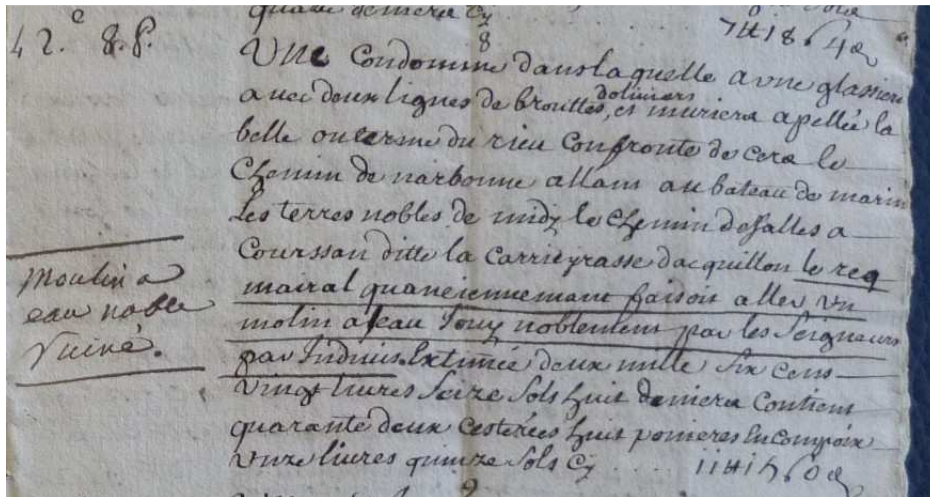 quatre deniers Cy
7 ₶ 18 s 4 d
42. c. 8. p.
8
Une Condomine dans laquelle a une glassiere
avec deux lignes de brouttes, doliviers et muriers apellée la
belle ou terme du rieu Confronte de cers le
Chemin de narbonne allant au bateau de marin
Les terres nobles de midy le Chemin de salles a
Courssan ditte la Carrieyrasse dacquillon le req
mairal quanciennement faisoit aller un
molin a eau Jouy noblement par les Seigneurs
par Indivis. Extimée deux mille Six Cens
Vingt livres Seize Sols huit deniers Contient
quarante deux Cesterées huit ponieres En Compoix
Unze livres quinze Sols Cy
11 ₶ 15 s 0 d
9
Moulin a
eau noble
Ruiné.